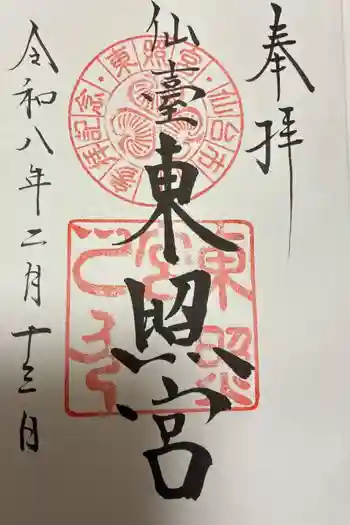 奉拝
仙臺東照宮
令和八年二月十三日
東照宮・仙台市
参拝記念
東照宮